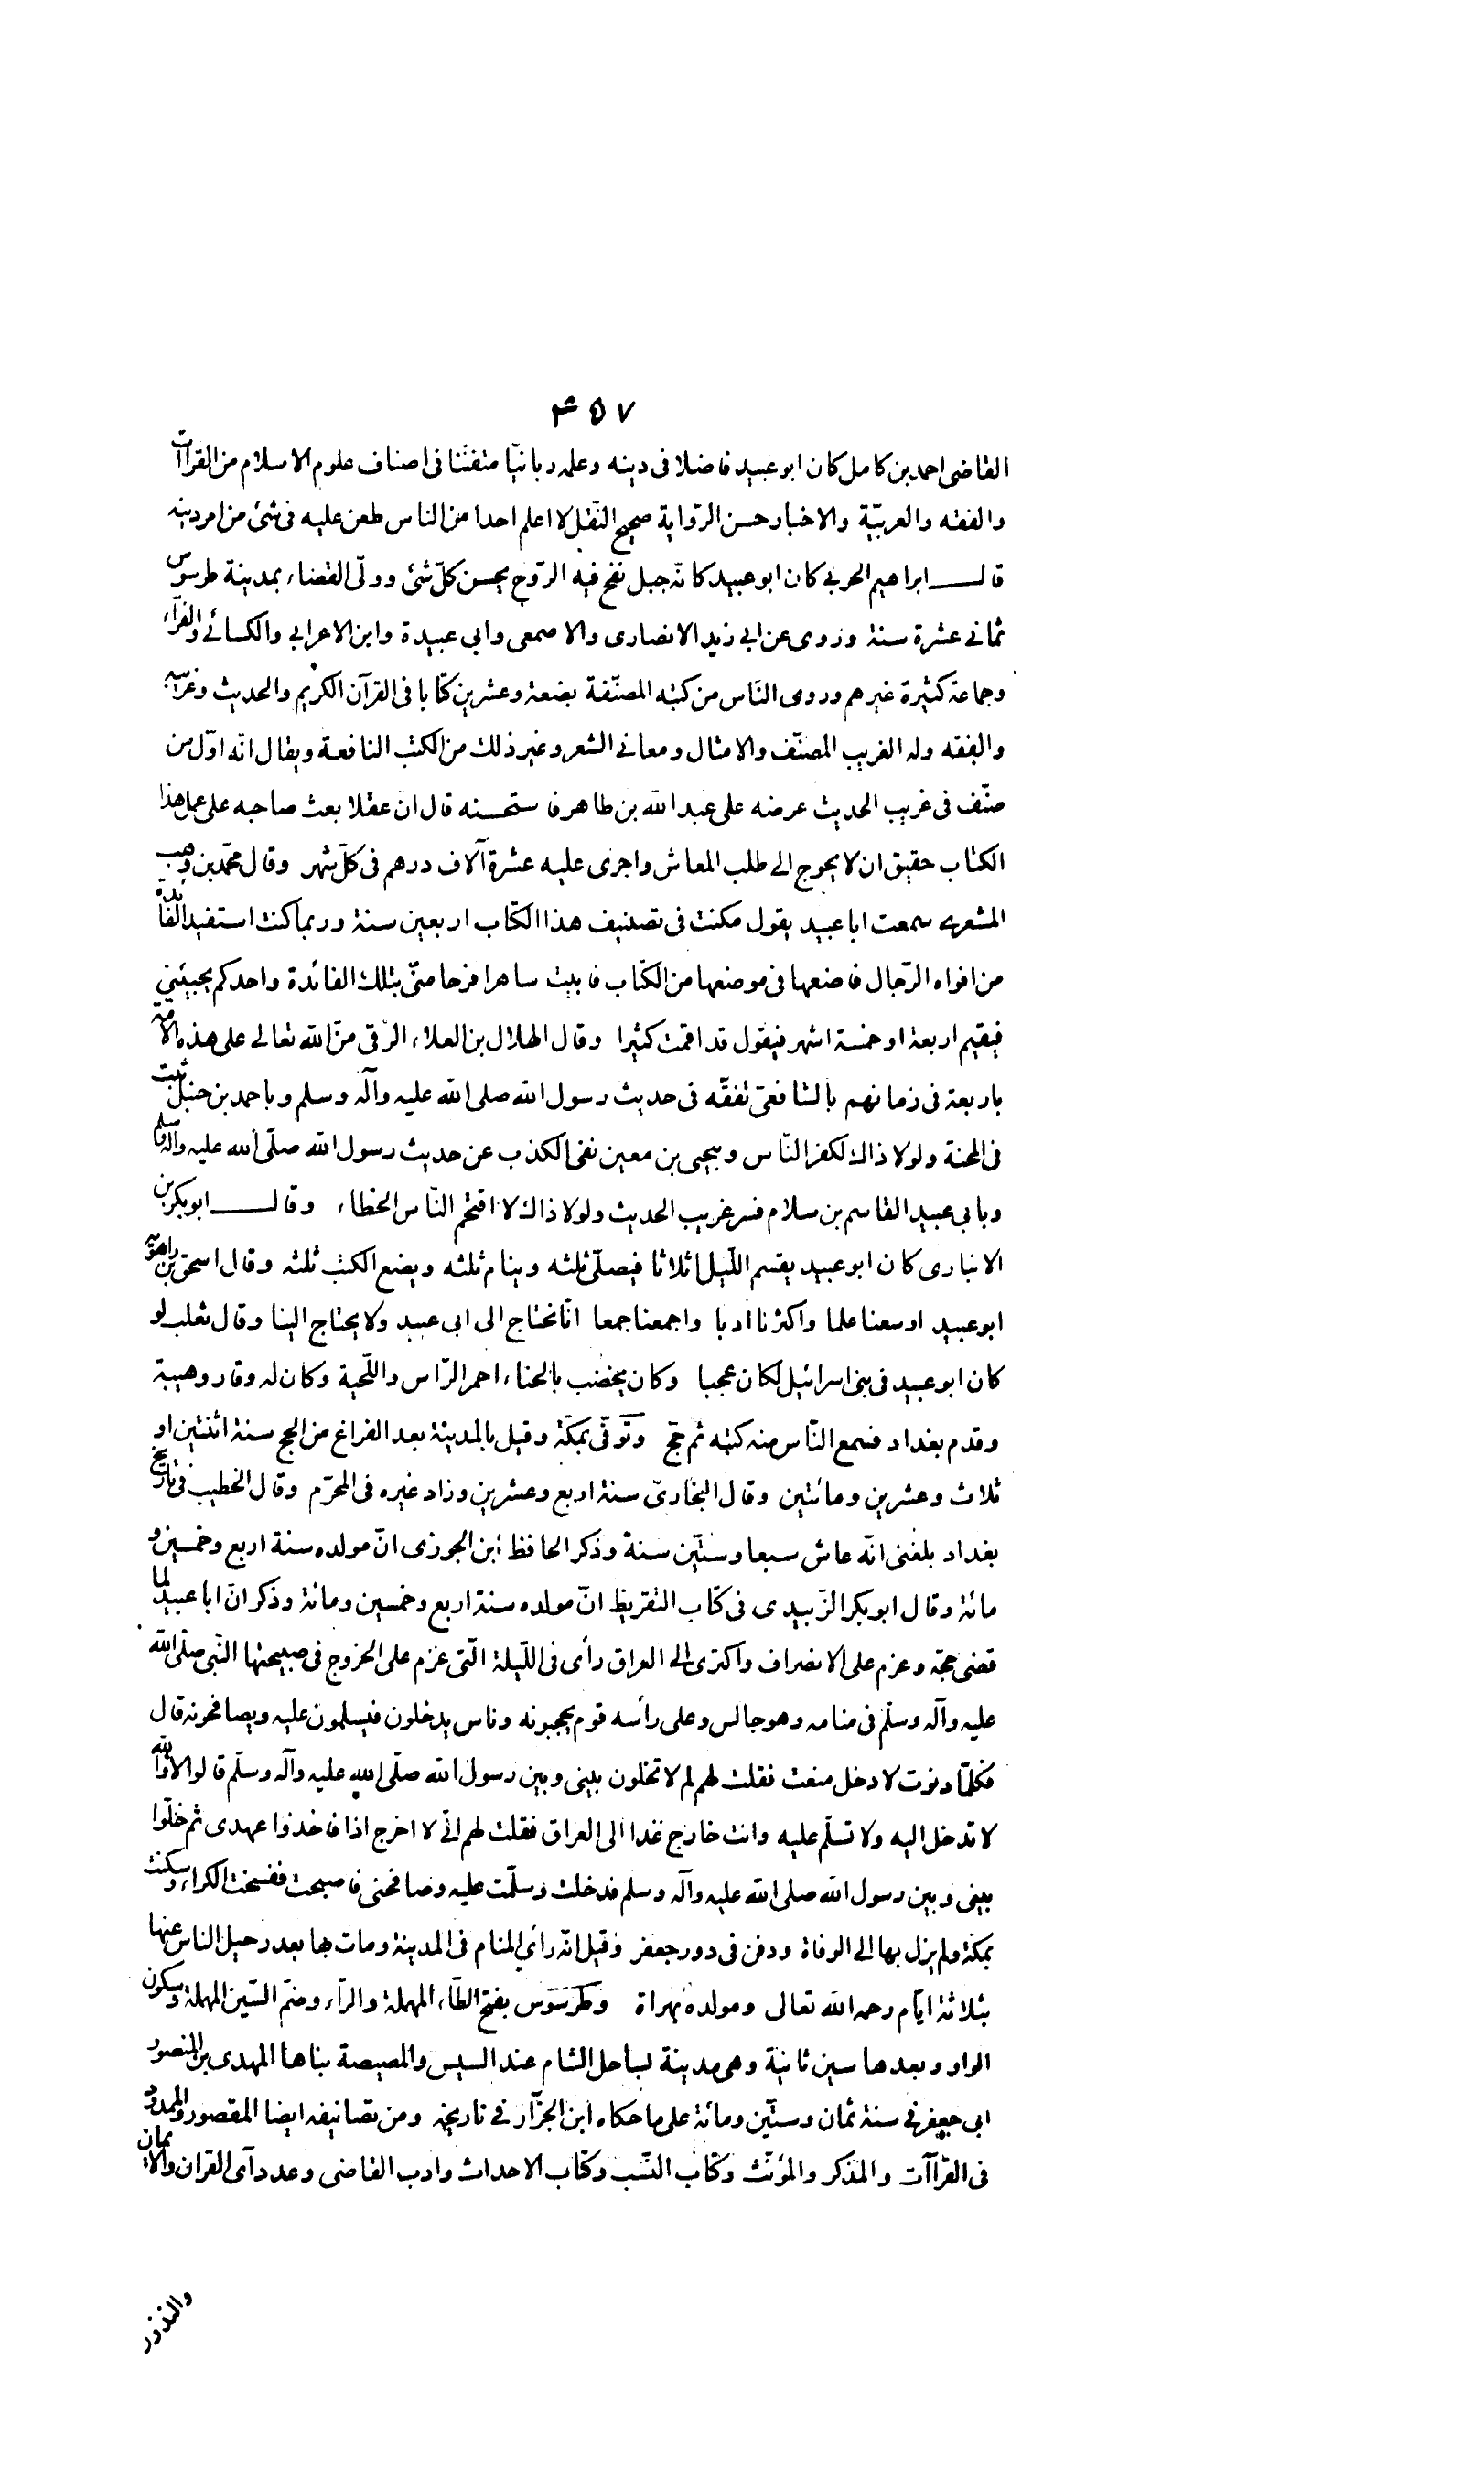 ۴۵۷
القاضى احمد بن كامل كان ابو عبيد فاضلا فى دينه وعلمه ربانيّا متفنّنا فى اصناف علوم الاسلام من القرآآت
والفقه والعربيّة والاخبار حسن الرّواية صحيح النّقل لا اعلم احدا من الناس طعن عليه فى شئ من امر دينه
قال ابراهيم الحربى كان ابو عبيد كانّه جبل نفخ فيه الرّوح يحسن كلّ شئ وولّى القضاء بمدينة طرسوس
ثمانى عشرة سنة وروى عن ابى زيد الانصارى والاصمعى وابى عبيدة وابن الاعرابى والكسائى والفرّاء
وجماعة كثيرة غيرهم وروى النّاس من كتبه المصنّفة بضعة وعشرين كتابا فى القرآن الكريم والحديث وغريبه
والفقه وله الغريب المصنّف والامثال ومعانى الشعر وغير ذلك من الكتب النافعة ويقال انّه اوّل من
صنّف فى غريب الحديث عرضه على عبد الله بن طاهر فاستحسنه قال ان عقلا بعث صاحبه على عمل هذا
الكتاب حقيق ان لا يحوج الى طلب المعاش واجرى عليه عشرة آلاف درهم فى كلّ شهر وقال محمّد بن وهب
المشعرى سمعت ابا عبيد يقول مكنت فى تصنيف هذا الكتاب اربعين سنة وربما كنت استفيد الفائدة
من افواه الرّجال فاضعها فى موضعها من الكتاب فابيت ساهرا فرحا منّى بتلك الفائدة واحدكم يجيئنى
فيقيم اربعة او خمسة اشهر فيقول قد اقمت كثيرا وقال الهلال بن العلاء الرّقى منّ الله تعالى على هذه الامّة
باربعة فى زمانهم بالشافعىّ تفقّه فى حديث رسول الله صلى الله عليه وآله وسلم وباحمد بن حنبل ثبت
فى المحنة ولولا ذاك لكفر النّاس وبيحيى بن معين نفى الكذب عن حديث رسول الله صلّى الله عليه وآله وسلم
وبابى عبيد القاسم بن سلام فسر غريب الحديث ولولا ذاك لاقتحم النّاس الخطاء وقال ابوبكر بن
الانبارى كان ابو عبيد يقسم اللّيل اثلاثا فيصلّى ثلثه وينام ثلثه ويضع الكتب ثلثه وقال اسحق بن راهويه
ابو عبيد اوسعنا علما واكثرنا ادبا واجمعنا جمعا انّا نحتاج الى ابى عبيد ولا يحتاج الينا وقال ثعلب لو
كان ابو عبيد فى بنى اسرائيل لكان عجبا وكان يخضب بالحناء احمر الرّاس واللّحية وكان له وقار وهيبة
وقدم بغداد فسمع النّاس منه كتبه ثم حجّ وتوفّى بمكّة وقيل بالمدينة بعد الفراغ من الحج سنة اثنتين او
ثلاث وعشرين ومائتين وقال البخارىّ سنة اربع وعشرين وزاد غيره فى المحرّم وقال الخطيب فى تاريخ
بغداد بلغنى انّه عاش سبعا وستّين سنة وذكر الحافظ ابن الجوزى انّ مولده سنة اربع وخمسين و
مائة وقال ابوبكر الزّبيدى فى كتاب التقريظ انّ مولده سنة اربع وخمسين ومائة وذكر انّ ابا عبيد لما
قضى حجّه وعزم على الانصراف واكترى الى العراق رأى فى اللّيلة الّتى عزم على الخروج فى صبيحتها النّبى صلّى الله
عليه وآله وسلّم فى منامه وهو جالس وعلى رأسه قوم يحجبونه وناس يدخلون فيسلمون عليه ويصافحونه قال
فكلمّا دنوت لادخل منعت فقلت لهم لم لا تخلون بينى وبين رسول الله صلّى الله عليه وآله وسلّم قالوا لا والله
لا تدخل اليه ولا تسلّم عليه وانت خارج غدا الى العراق فقلت لهم انّى لا اخرج اذا فاخذوا عهدى ثم خلّوا
بينى وبين رسول الله صلى الله عليه وآله وسلم فدخلت وسلّمت عليه وصافحنى فاصبحت ففسخت الكراء وسكنت
بمكّة ولم يزل بها الى الوفاة ودفن فى دور جعفر وقيل انّه رأى المنام فى المدينة ومات بها بعد رحيل الناس عنها
بثلاثة ايّام رحمه الله تعالى ومولده بهراة وطرسوس بفتح الطّاء المهملة والرّاء وضمّ السّين المهملة وسكون
الواو وبعدها سين ثانية وهى مدينة بساحل الشام عند السيس والمصيصة بناها المهدى بن المنصور
ابى جعفر فى سنة ثمان وستّين ومائة على ما حكاه ابن الجزّار فى تاريخه ومن تصانيفه ايضا المقصور والممدود
فى القرّاآت والمذكر والمؤنّث وكتاب النّسب وكتاب الاحداث وادب القاضى وعدد آى القران والايمان
والنذور